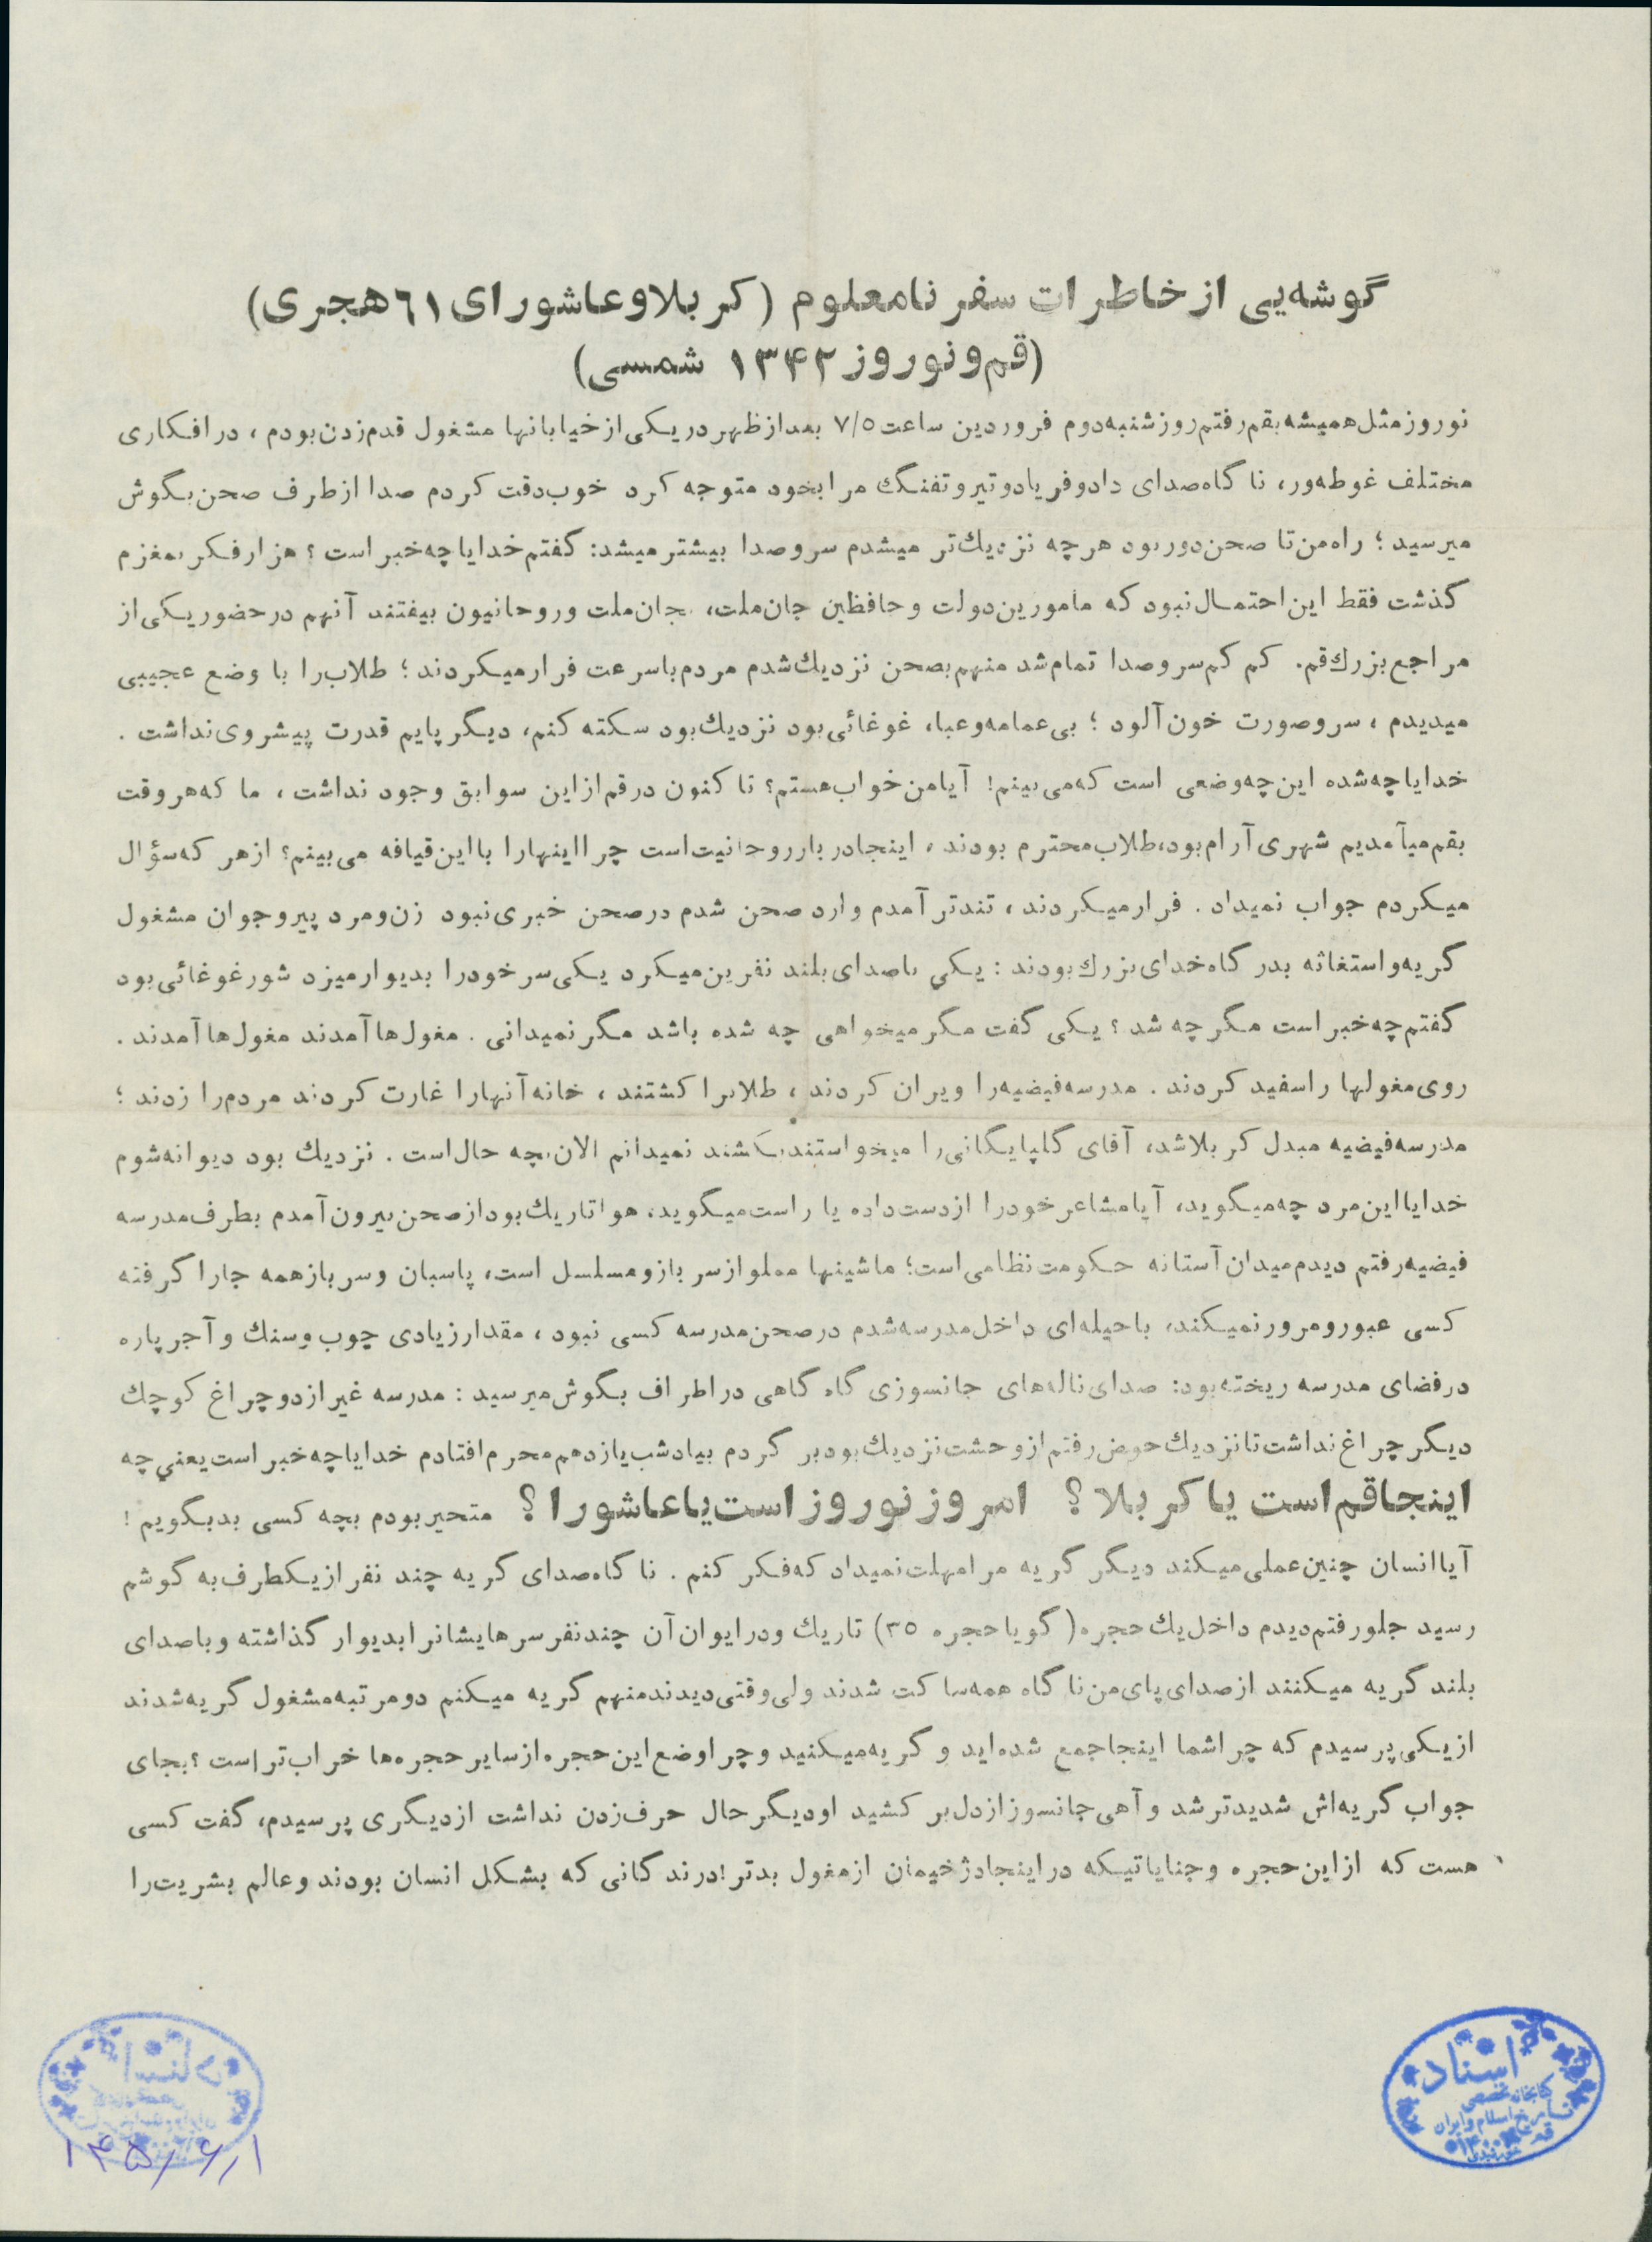 گوشه‌یی از خاطرات سفر نامعلوم (کربلا و عاشورای ٦١ هجری)
(قم و نوروز ۱۳۴۲ شمسی)
نوروز مثل همیشه بقم رفتم روز شنبه دوم فروردین ساعت ۷/۵ بعد از ظهر در یکی از خیابانها مشغول قدم زدن بودم ، در افکاری
مختلف غوطه‌ور، ناگاه صدای داد و فریاد و تیر و تفنگ مرا بخود متوجه کرد خوب دقت کردم صدا از طرف صحن بگوش
میرسید ؛ راه من تا صحن دور بود هر چه نزدیك‌تر میشدم سر و صدا بیشتر میشد: گفتم خدایا چه خبر است ؟ هزار فکر بمغزم
گذشت فقط این احتمال نبود که مامورین دولت و حافظین جان ملت، بجان ملت و روحانیون بیفتند آنهم در حضور یکی از
مراجع بزرك قم. کم کم سر و صدا تمام شد منهم بصحن نزدیك شدم مردم با سرعت فرار میکردند ؛ طلاب را با وضع عجیبی
میدیدم ، سر و صورت خون آلود ؛ بی عمامه و عبا، غوغائی بود نزدیك بود سکته کنم، دیگر پایم قدرت پیشروی نداشت .
خدایا چه شده این چه وضعی است که می بینم! آیا من خواب هستم؟ تا کنون در قم از این سوابق وجود نداشت ، ما که هر وقت
بقم میآمدیم شهری آرام بود، طلاب محترم بودند ، اینجا دربار روحانیت است چرا اینها را با این قیافه می بینم؟ از هر که سؤال
میکردم جواب نمیداد . فرار میکردند ، تندتر آمدم وارد صحن شدم در صحن خبری نبود زن و مرد پیر و جوان مشغول
گریه و استغاثه بدرگاه خدای بزرك بودند : یکی با صدای بلند نفرین میکرد یکی سر خود را بدیوار میزد شور غوغائی بود
گفتم چه خبر است مگر چه شد ؟ یکی گفت مگر میخواهی چه شده باشد مگر نمیدانی . مغول‌ها آمدند مغول‌ها آمدند .
روی مغولها را سفید کردند . مدرسه فیضیه را ویران کردند ، طلابرا کشتند ، خانه آنها را غارت کردند مردم را زدند ؛
مدرسه فیضیه مبدل کربلا شد، آقای گلپایگانی را میخواستند بکشند نمیدانم الان بچه حال است . نزدیك بود دیوانه شوم
خدایا این مرد چه میگوید، آیا مشاعر خود را از دست داده یا راست میگوید. هوا تاریك بود از صحن بیرون آمدم بطرف مدرسه
فیضیه رفتم دیدم میدان آستانه حکومت نظامی است؛ ماشینها مملو از سرباز و مسلسل است، پاسبان و سرباز همه جا را گرفته
کسی عبور و مرور نمیکند، با حیله‌ای داخل مدرسه شدم در صحن مدرسه کسی نبود ، مقدار زیادی چوب و سنك و آجر پاره
در فضای مدرسه ریخته بود: صدای ناله‌های جانسوزی گاه گاهی در اطراف بگوش میرسید : مدرسه غیر از دو چراغ کوچك
دیگر چراغ نداشت تا نزدیك حوض رفتم از وحشت نزدیك بود برگردم بیاد شب یازدهم محرم افتادم خدایا چه خبر است یعنی چه
اینجا قم است یا کربلا ؟ امروز نوروز است یا عاشورا ؟ متحیر بودم بچه کسی بد بگویم !
آیا انسان چنین عملی میکند دیگر گریه مرا مهلت نمیداد که فکر کنم . ناگاه صدای گریه چند نفر از یکطرف به گوشم
رسید جلو رفتم دیدم داخل یك حجره ( گویا حجره ۳۵) تاریك و در ایوان آن چند نفر سرهایشانرا بدیوار گذاشته و با صدای
بلند گریه میکنند از صدای پای من ناگاه همه ساکت شدند ولی وقتی دیدند منهم گریه میکنم دو مرتبه مشغول گریه شدند
از یکی پرسیدم که چرا شما اینجا جمع شده‌اید و گریه میکنید و چرا وضع این حجره از سایر حجره‌ها خراب‌تر است ؟ بجای
جواب گریه‌اش شدیدتر شد و آهی جانسوز از دل بر کشید او دیگر حال حرف زدن نداشت از دیگری پرسیدم، گفت کسی
هست که از این حجره و جنایاتیکه در اینجا دژخیمان از مغول بدتر! درندگانی که بشکل انسان بودند و عالم بشریت را
اسناد
کتابخانه تخصصی
تاریخ اسلام و ایران
قم
۱۴۵/۶/۱